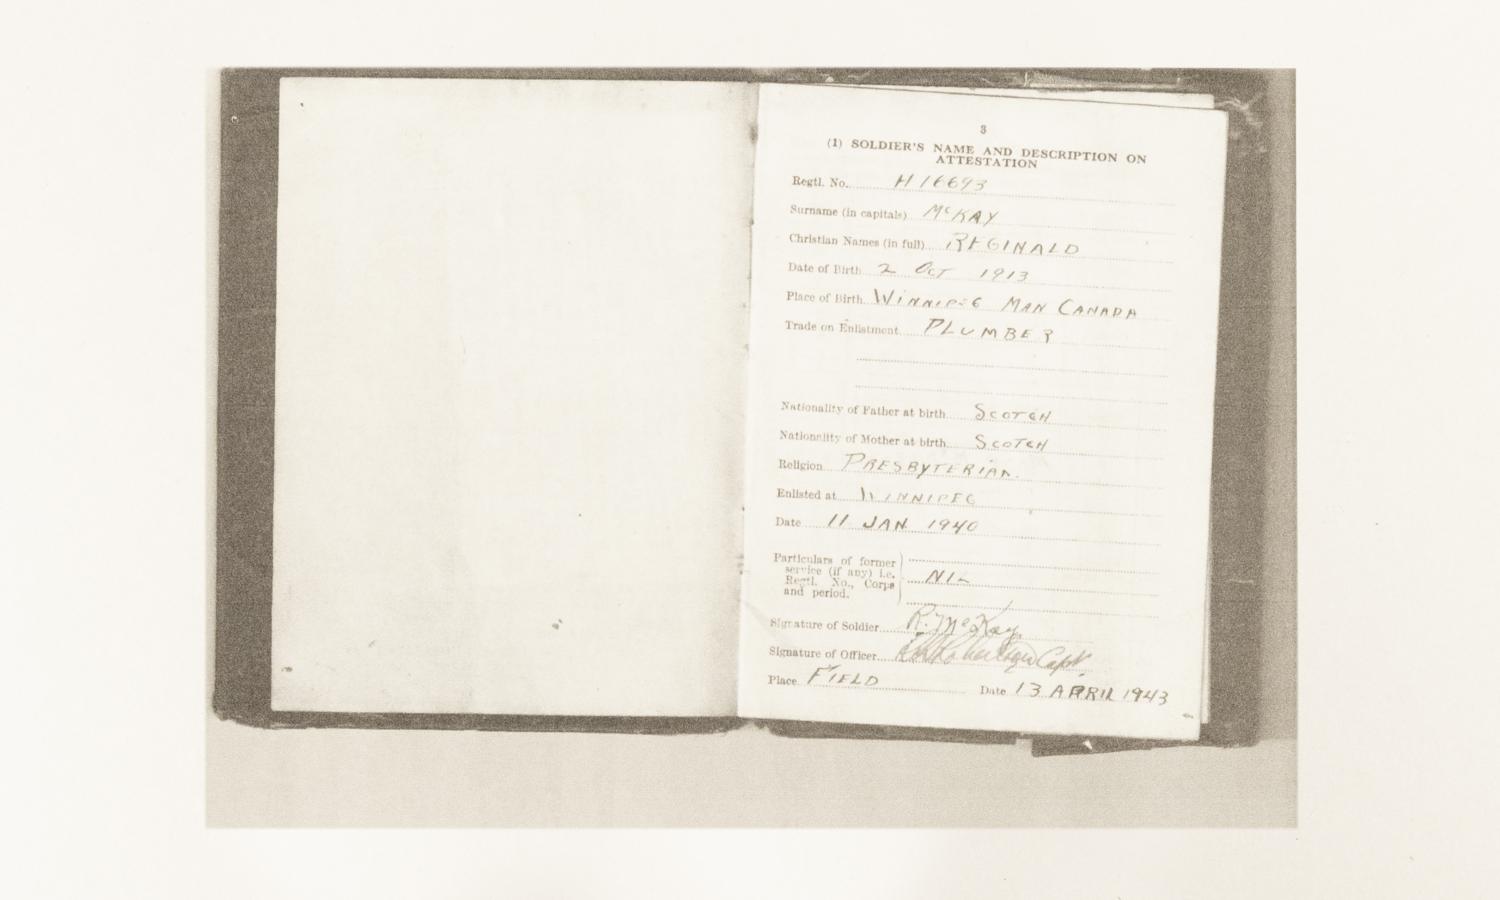 3
(1) SOLDIER'S NAME AND DESCRIPTION ON
ATTESTATION
Regtl. No. H 16693
Surname (in capitals) McKAY
Christian Names (in full) REGINALD
Date of Birth 2 OCT 1913
Place of Birth WINNIPEG MAN CANADA
Trade on Enlistment PLUMBER
Nationality of Father at birth SCOTCH
Nationality of Mother at birth SCOTCH
Religion PRESBYTERIAN.
Enlisted at WINNIPEG
Date 11 JAN 1940
Particulars of former
service (if any) i.e.
Regtl. No., Corps
and period. NIL
Signature of Soldier R. McKay.
Signature of Officer Capt
Place FIELD Date 13 APRIL 1943